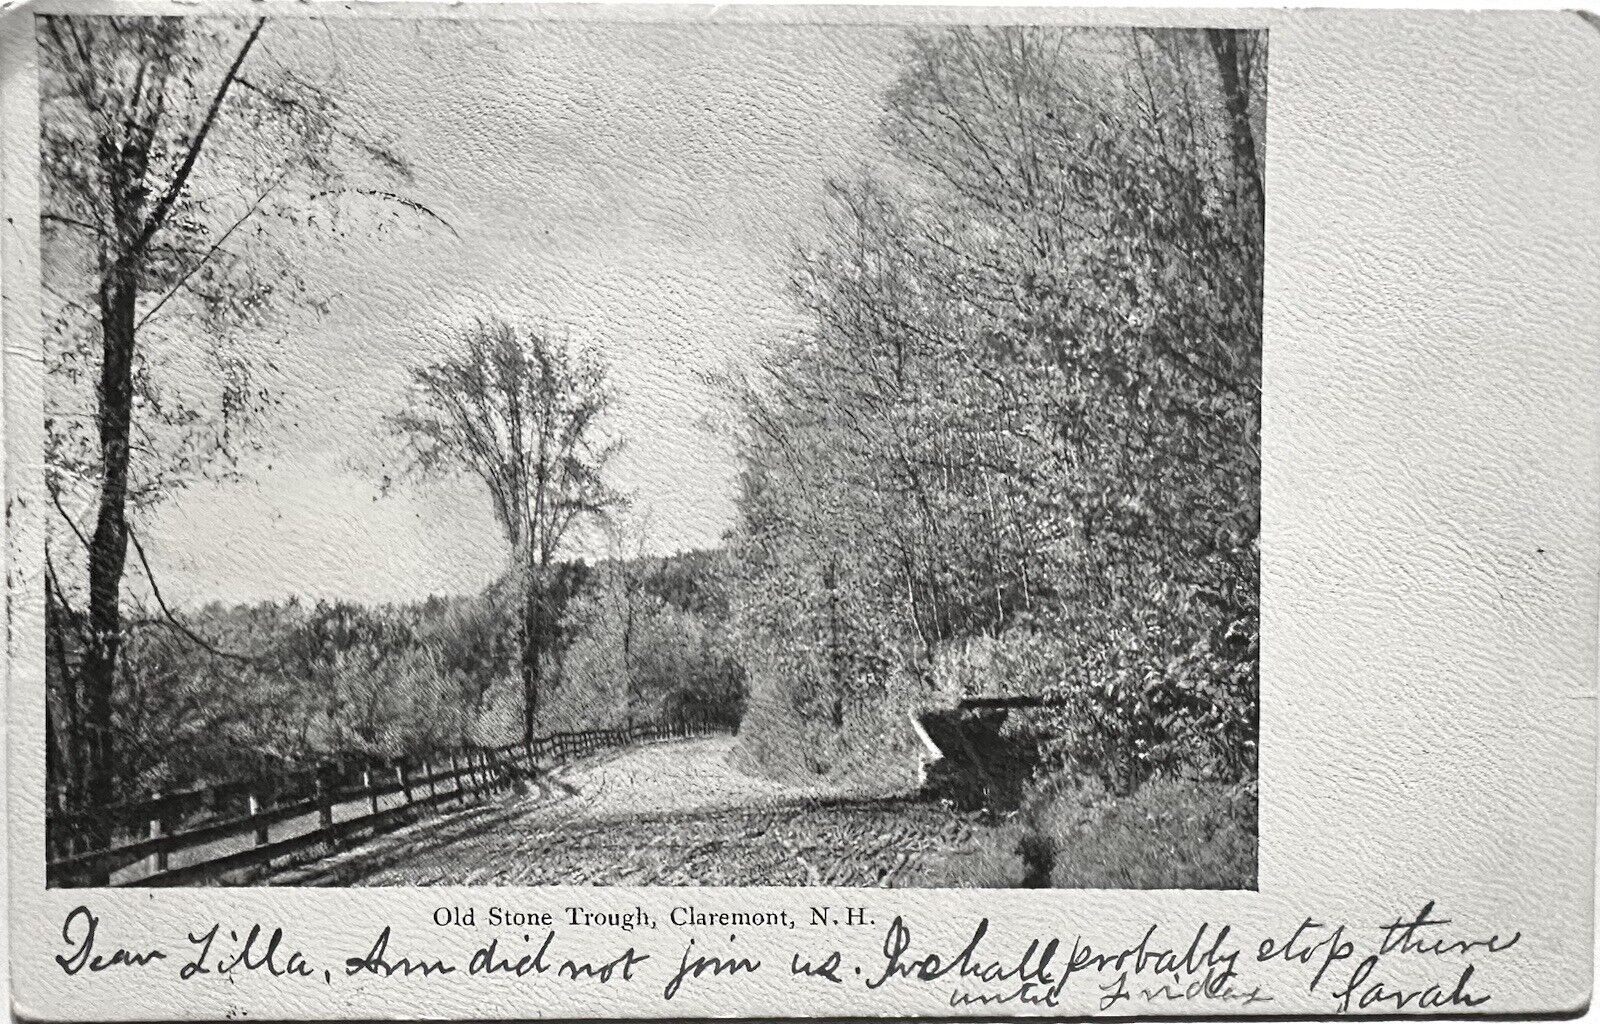 Old Stone Trough, Claremont, N. H.
Dear Lilla, Ann did not join us. I shall probably stop there
until Friday Sarah